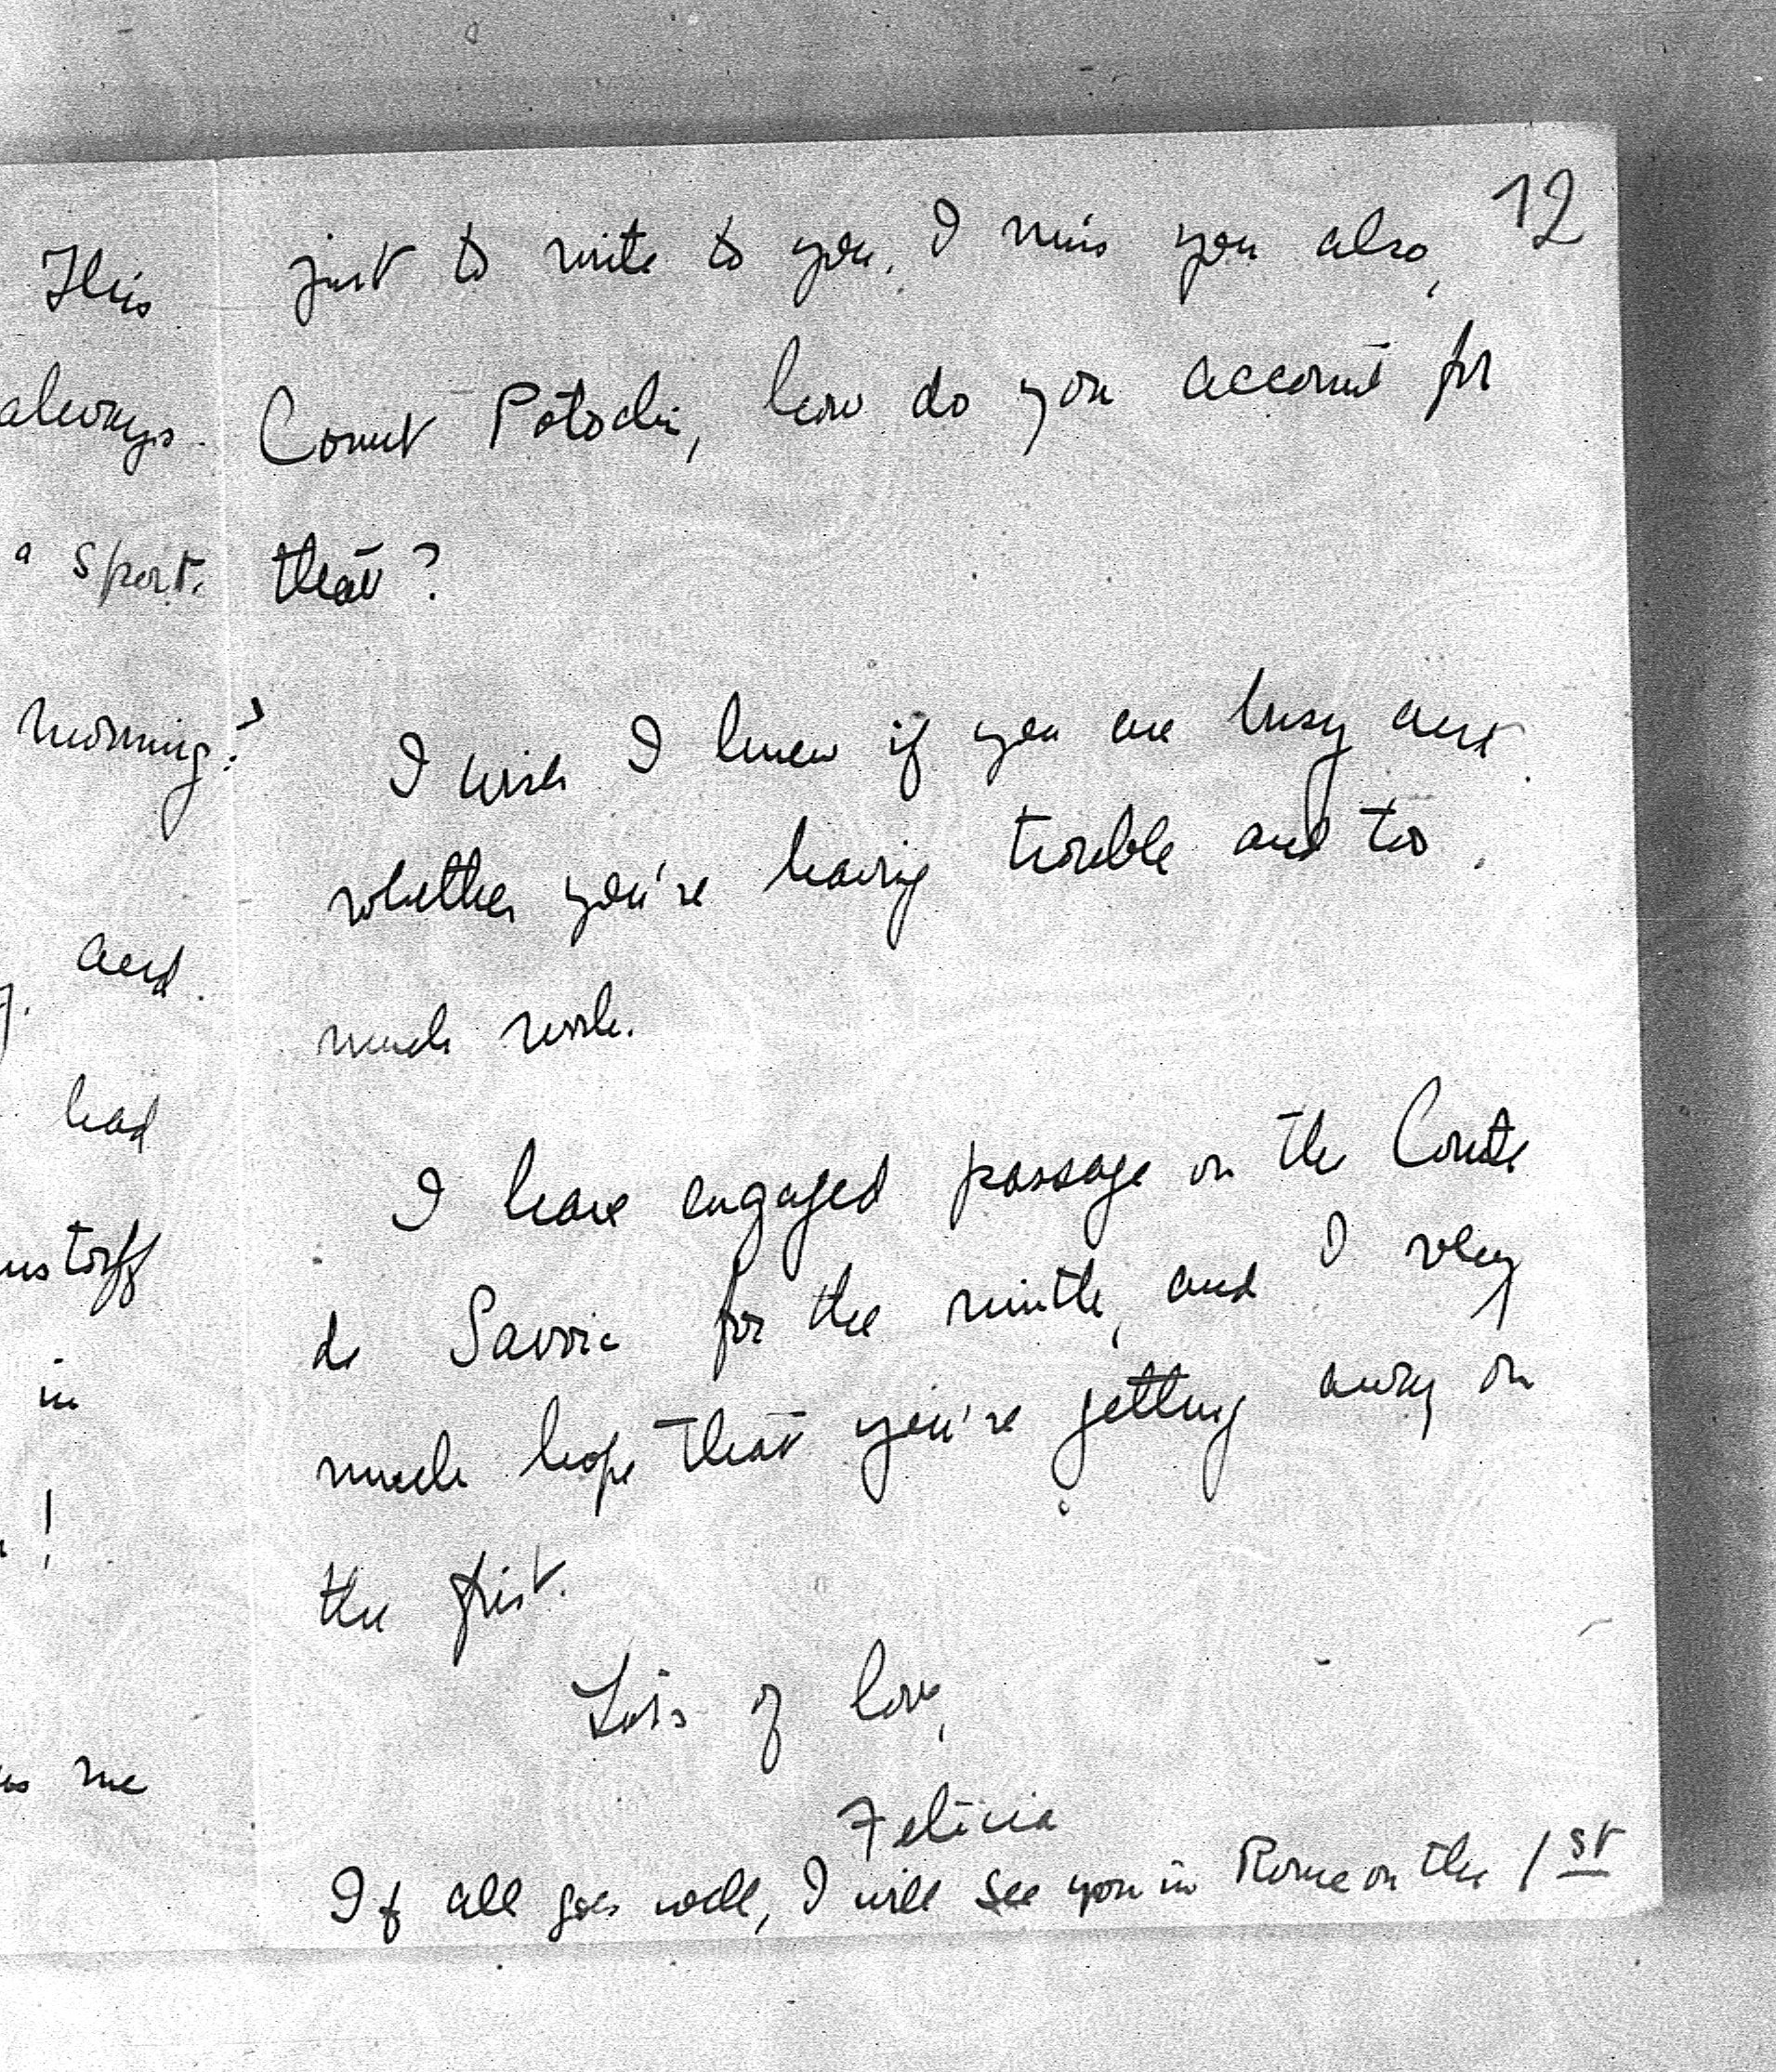 12
just to write to you. I miss you also,
Count Potocki, how do you account for
that?
I wish I knew if you are busy and
whether you're having trouble and too
much work.
I have engaged passage on the Conte
de Savoia for the ninth, and I very
much hope that you're getting away on
the first.
Lots of love,
Felicia
If all goes well, I will see you in Rome on the 1st
This
always
a sport.
morning?
and
had
in
!
me